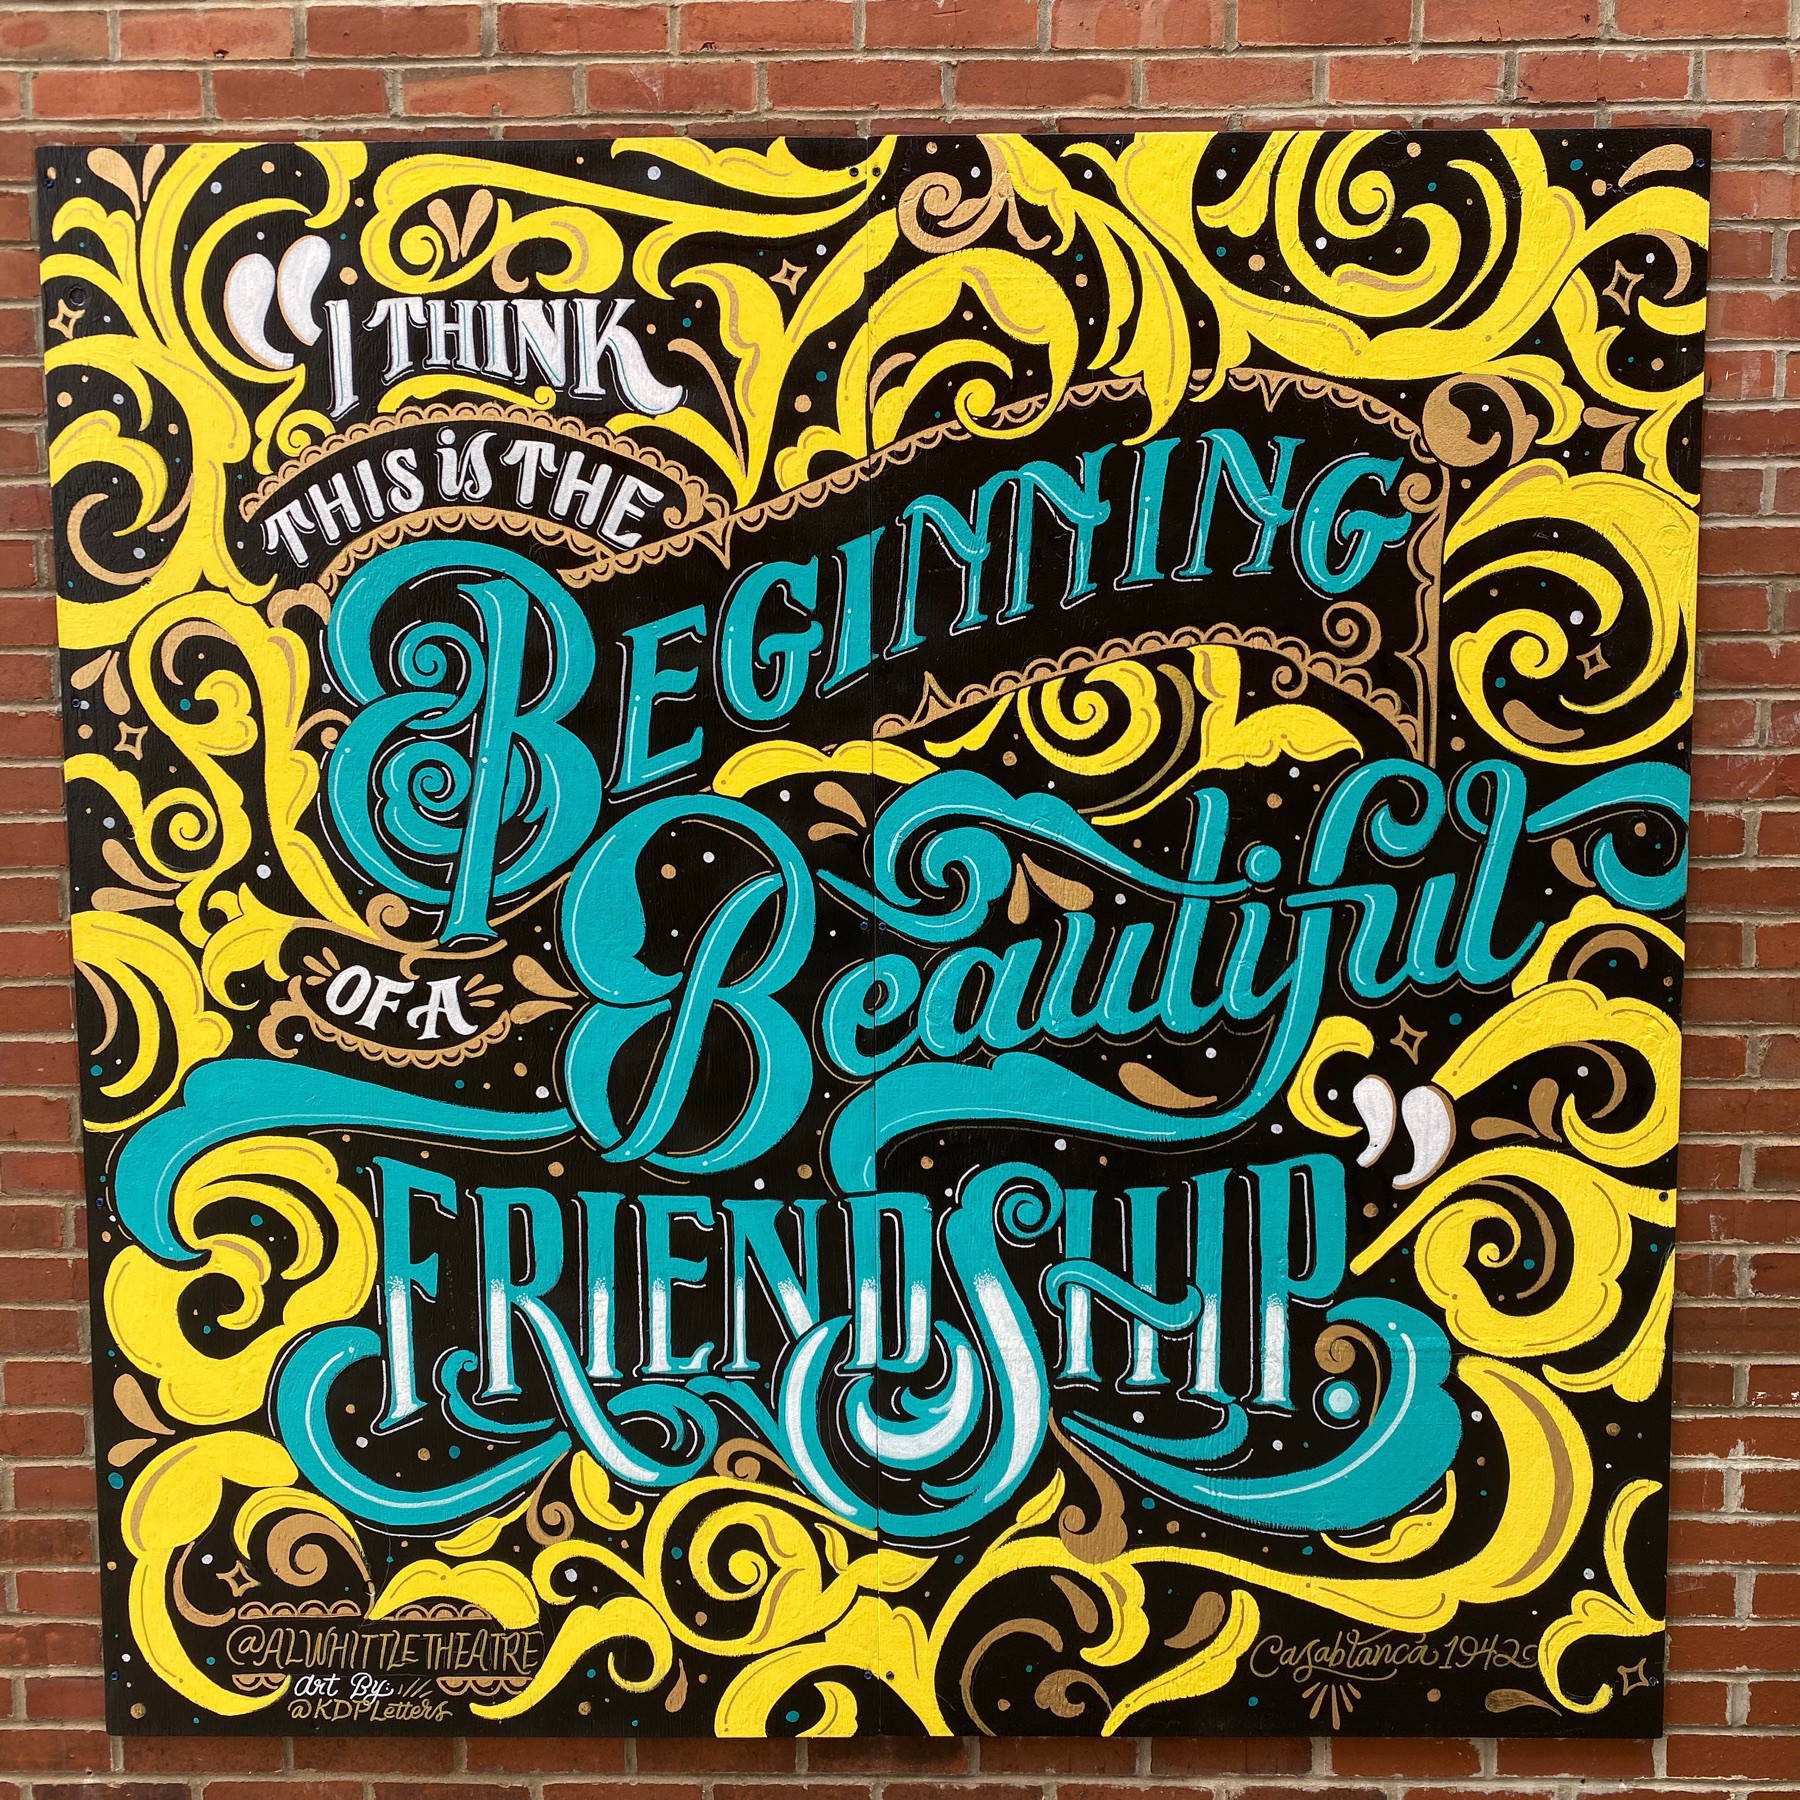 “I THINK
THIS iS THE
BEGINNING
OF A
Beautiful
FRIENDSHIP.”
@ALWHITTLETHEATRE
Art By:
@KDPLetters
Casablanca 1942